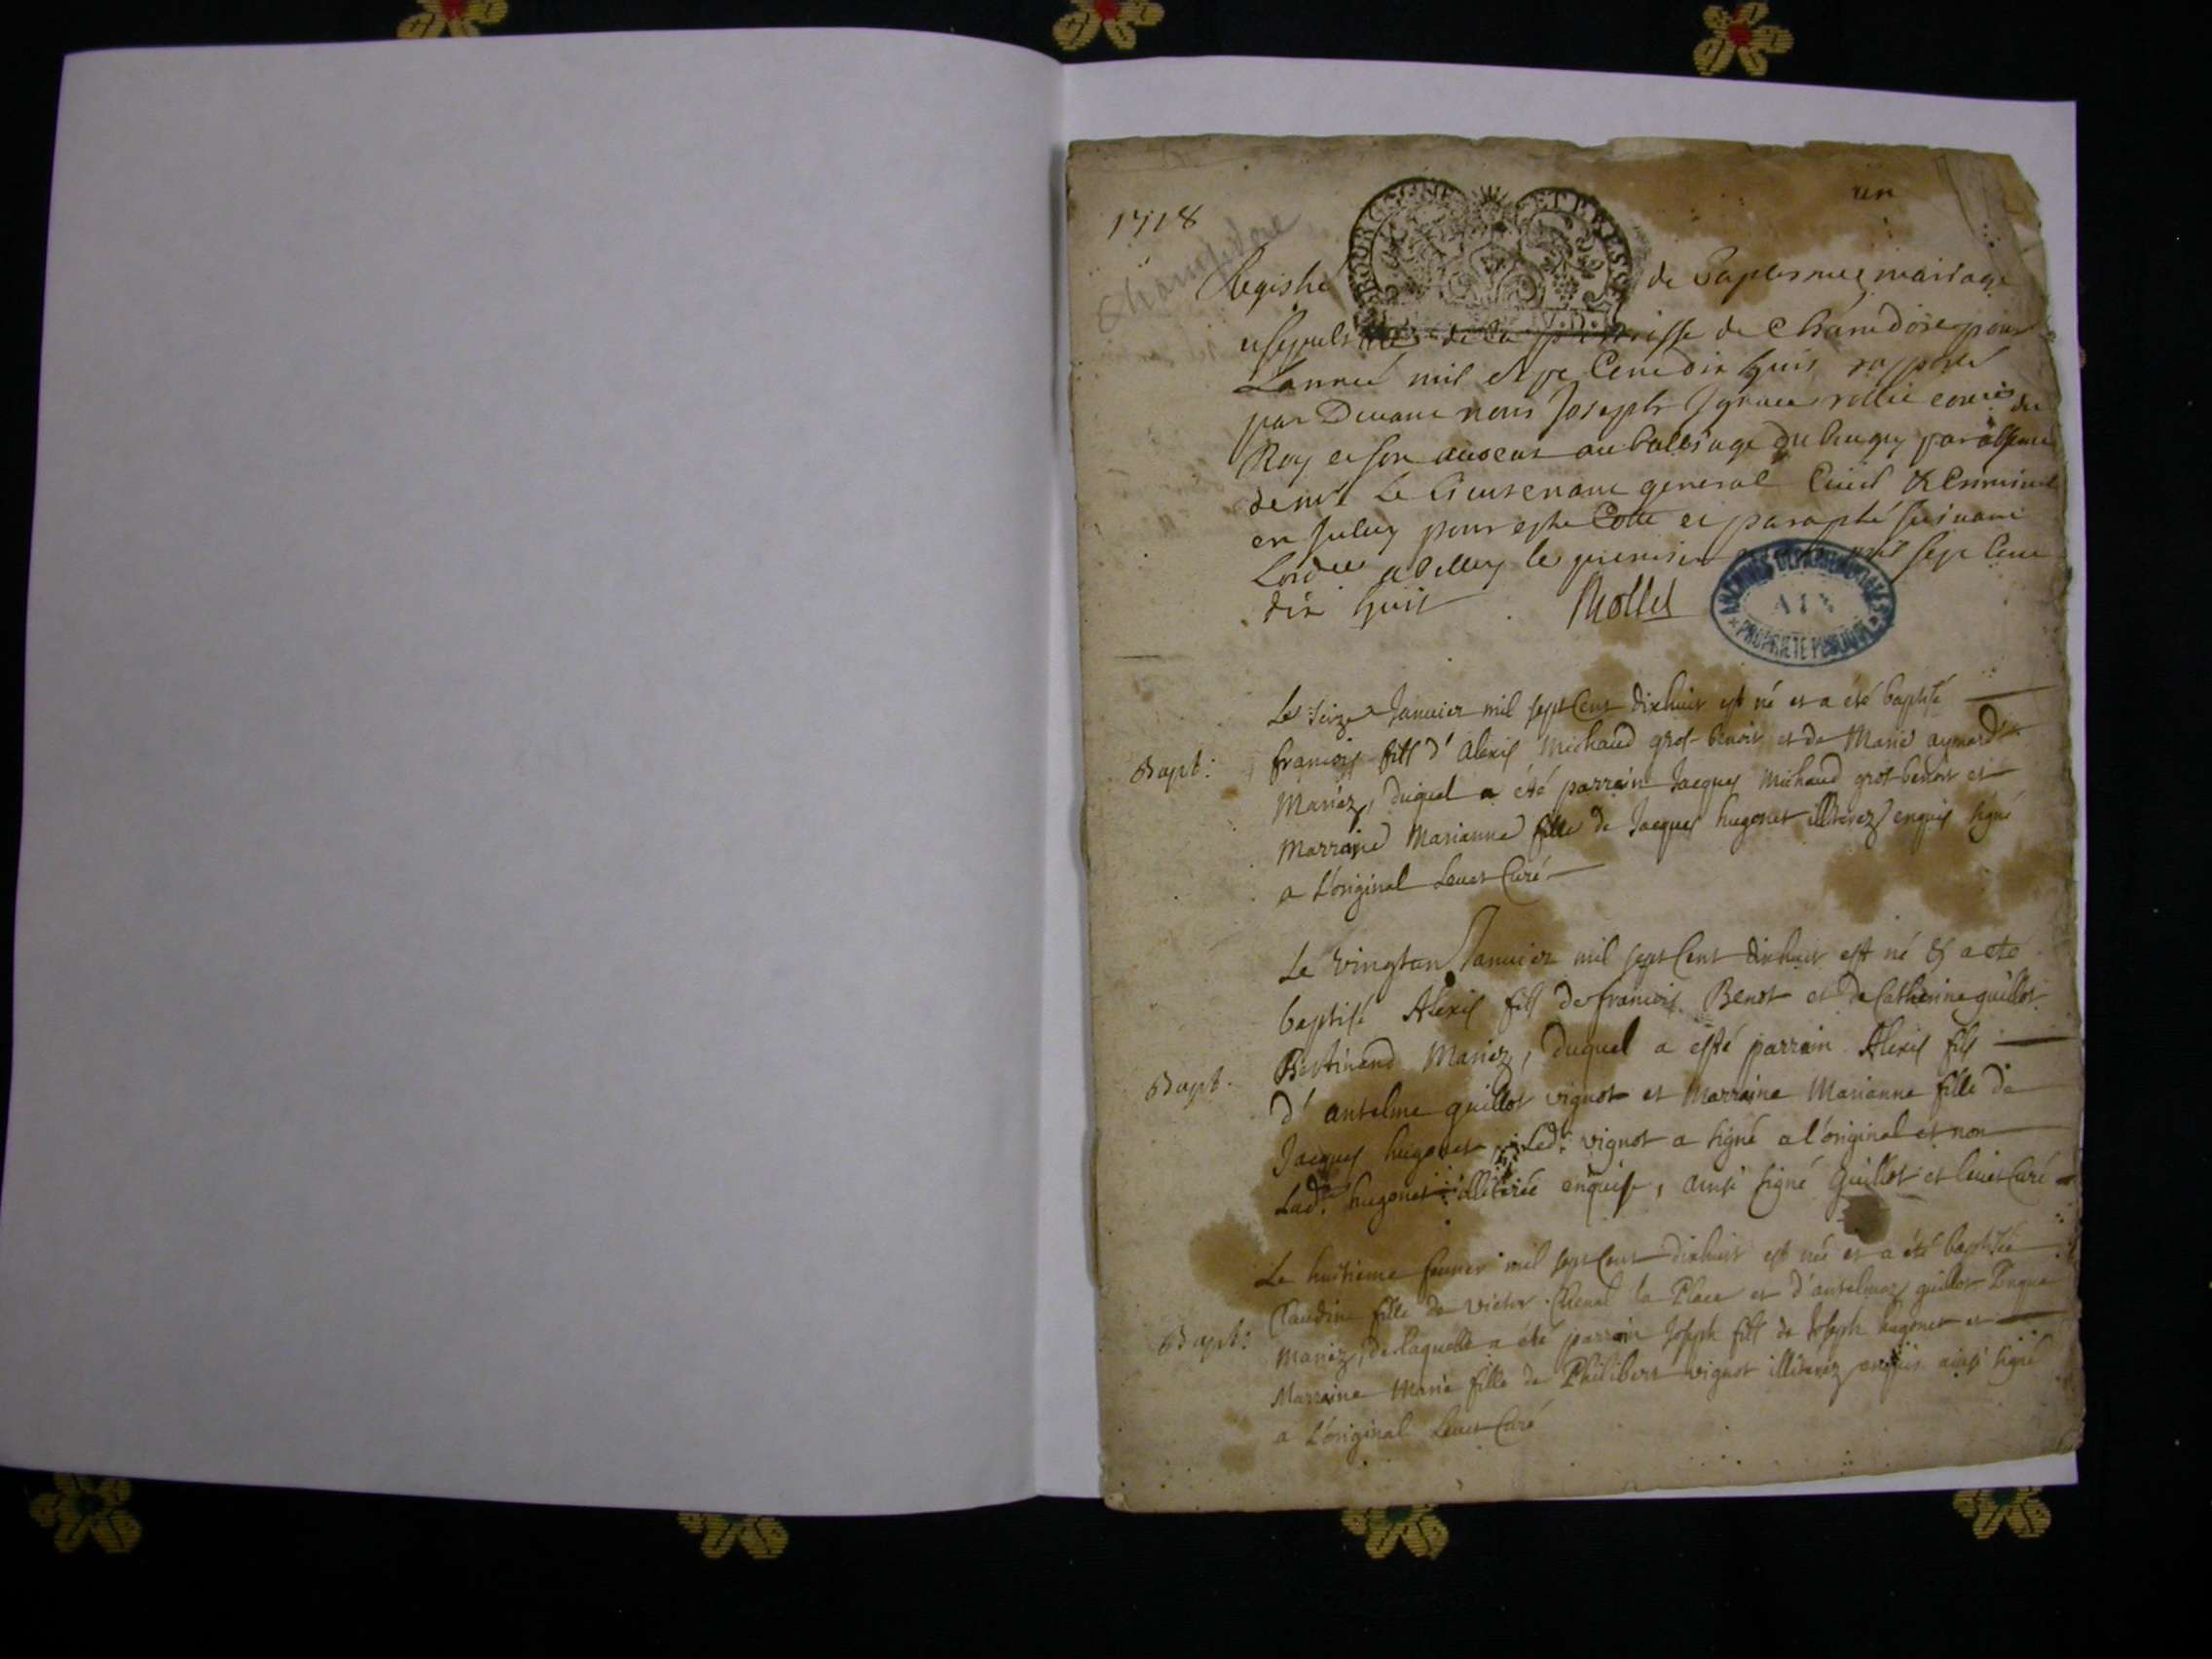 1718
un
Champdore
BOURG ET BRESS
Registre de Baptesmes mariage
et sepulstures de la parroisse de Chamdore pour
Lannee mil sept Cent dix huit raporté
par Devant nous Joseph Ignace rollet conser du
Roy et son avocat au balliage du bugey par absence
de mr Le Lieutenant general Civil & Criminel
en pour estre Cotté et paraphé suivant
Lord a belley le premier mil sept Cent
dix huit Rollet
ARCHIVES DEPARTEMENTALES
AIN
PROPRIETE PUBLIQUE
Le seize Janvier mil sept Cent dixhuit est né et a été baptisé
Bapt: francois fils d'Alexis Michaud grof benoit et de Marie aymard
Mariez, duquel a été parrain Jacques Michaud grof benoit et
Marraine Marianne fille de Jacques hugonet illiterez enquis signé
a L'original Levet Curé
Le vingtun Janvier mil sept Cent dixhuit est né & a eté
baptisé Alexis fils de francois Benot et de Catherine guillot
Bapt. Bertinand Mariez, duquel a esté parrain Alexis fils
d'antelme guillot vignot et Marraine Marianne fille de
Jacques hugonet, Led. vignot a signé a l'original et non
Lad. hugonet illiterée enquise, ainsi signé Guillot et levet Curé
Le huitieme fevrier mil sept Cent dixhuit est née et a été baptisée
Claudine fille de Victor Chenal la Place et d'antelmaz guillot
Bapt: Mariez, de laquelle a été parrain Joseph fils de Joseph hugonet et
Marraine Marie fille de Philibert vignot illiterez enquis ainsi signé
a L'original Levet Curé